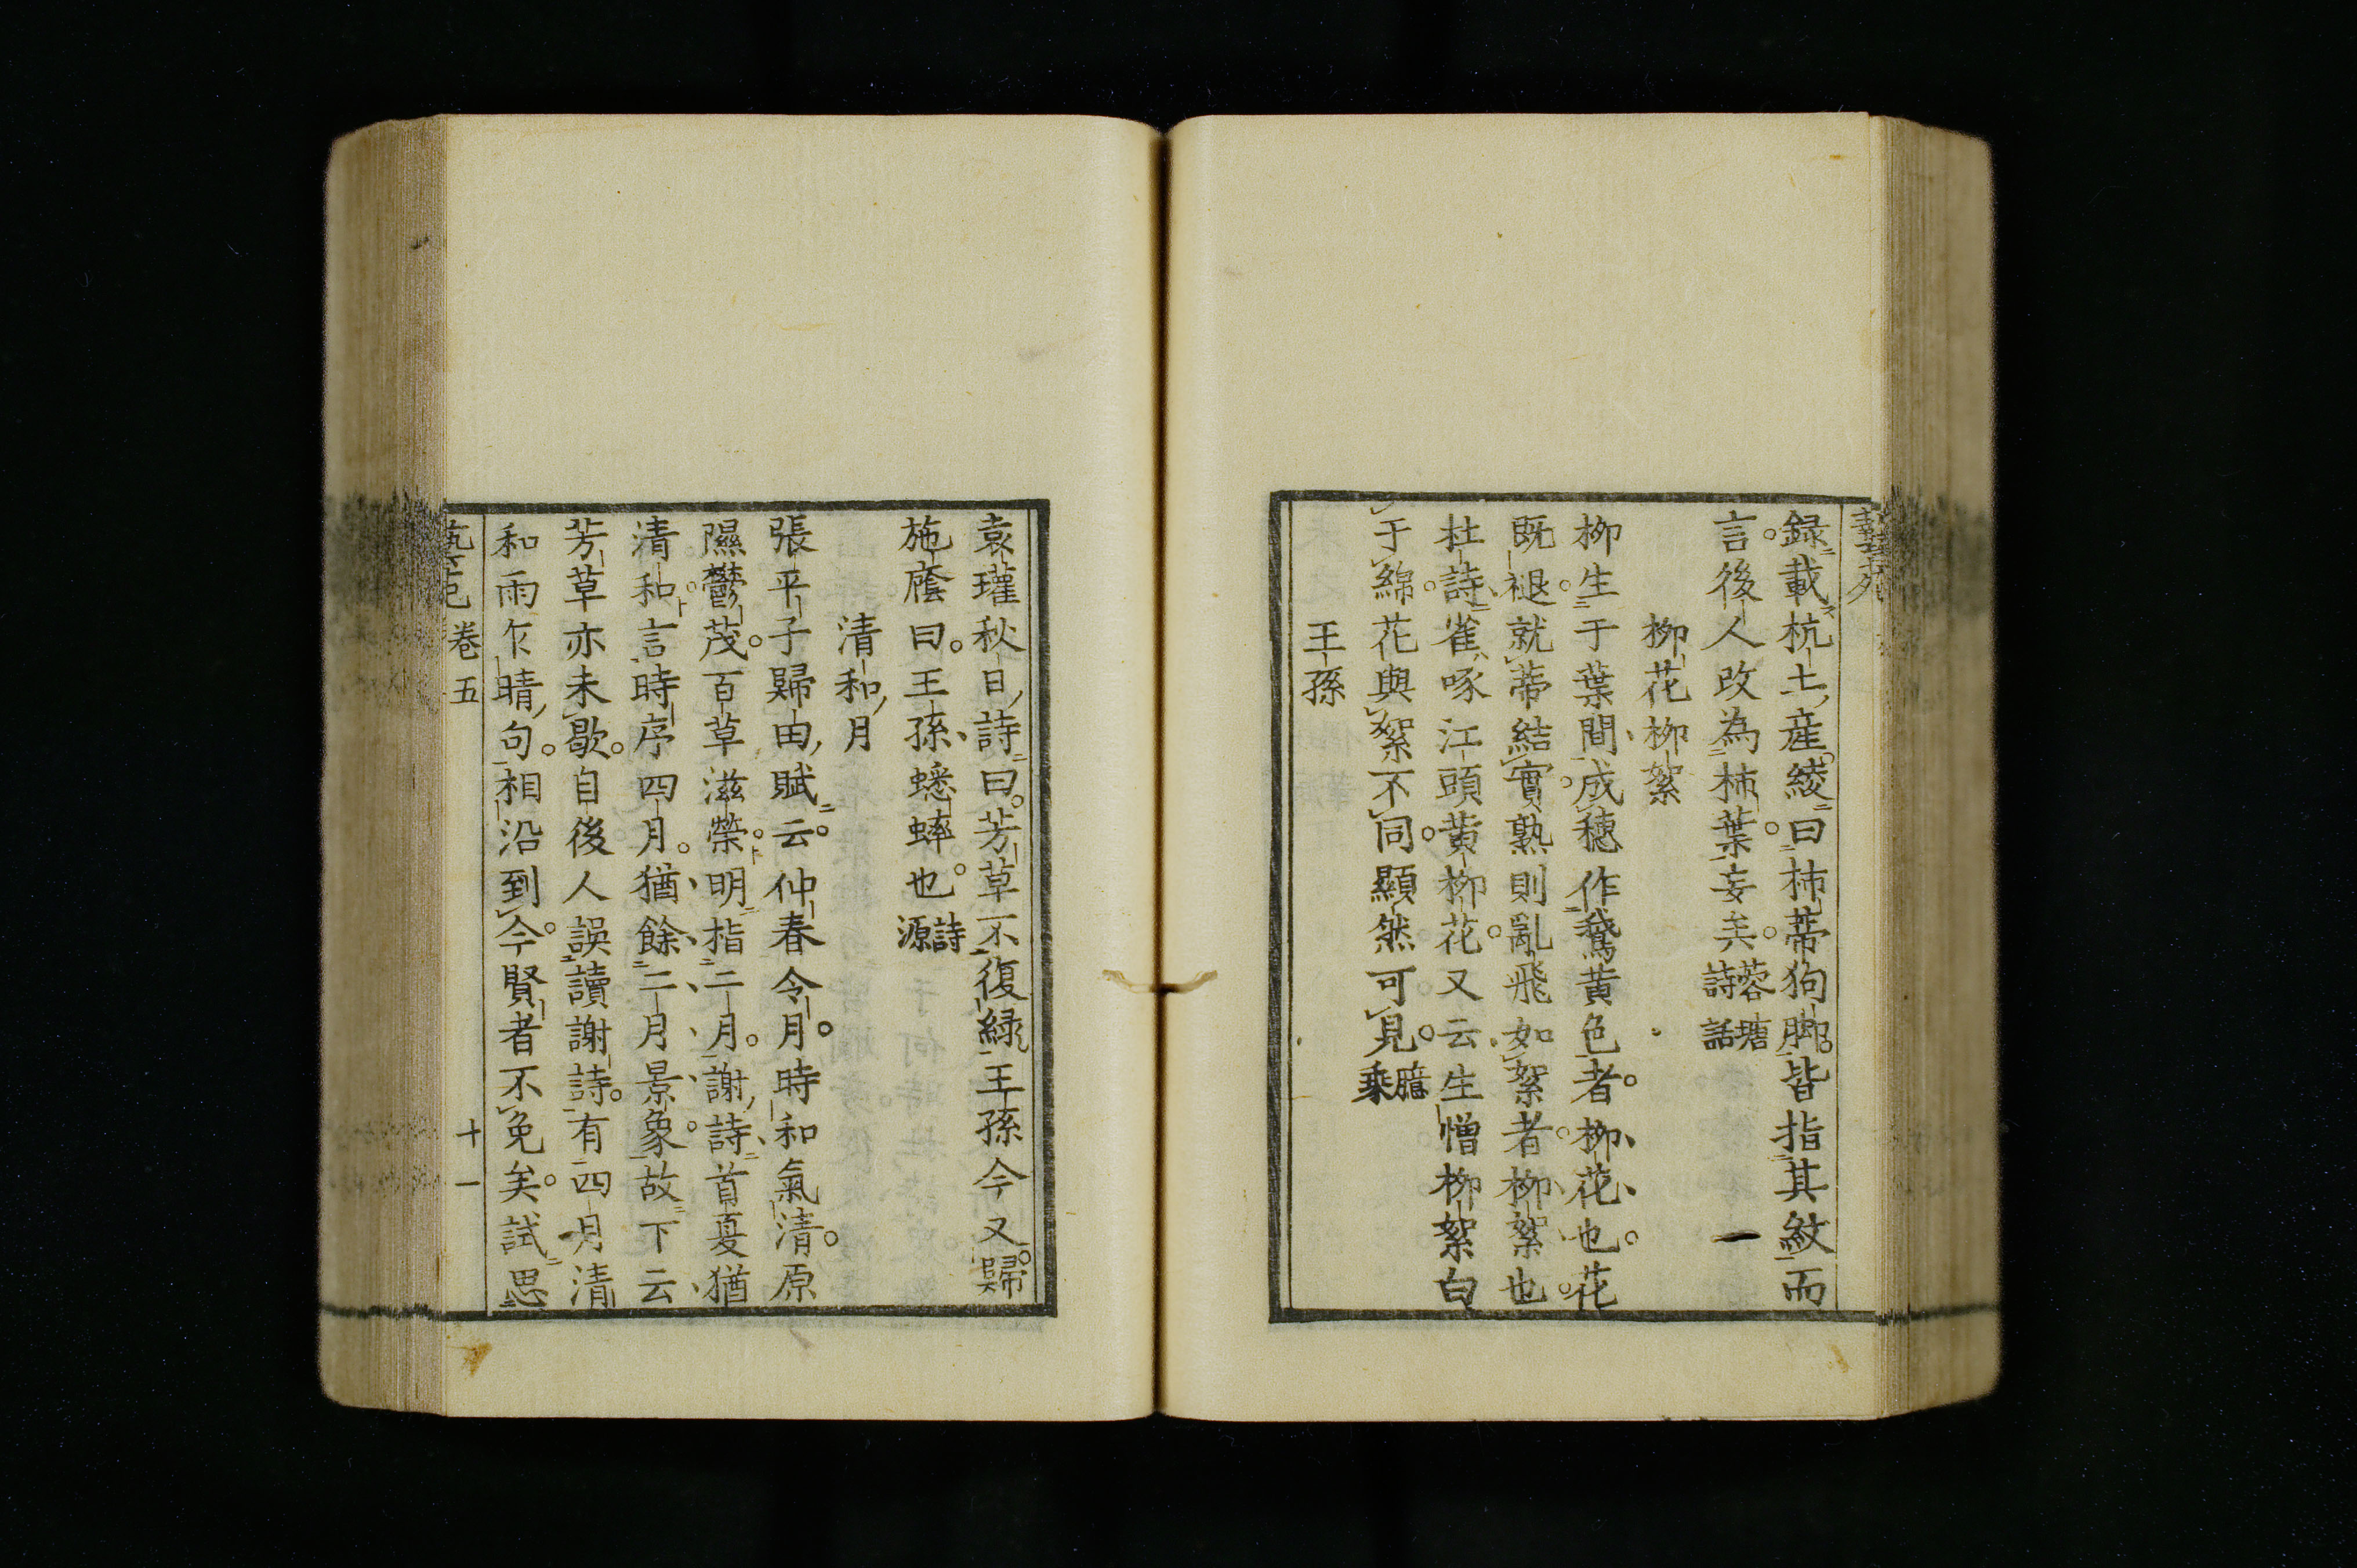 録載杭土産綾曰柿蒂狗脚皆指其紋而
言後人改為柿葉妄矣蓉塘詩話
柳花柳絮
柳生于葉間成穗作鵞黄色者柳花也花
既褪就蒂結實熟則亂飛如絮者柳絮也
杜詩雀啄江頭黄柳花又云生憎柳絮白
于綿花與絮不同顯然可見臆乗
王孫
袁瓘秋日詩曰芳草不復緑王孫今又歸
施廕曰王孫蟋蟀也詩源
清和月
張平子歸田賦云仲春令月時和氣清原
隰鬱茂百草滋榮明指二月謝詩首夏猶
清和言時序四月猶餘二月景象故下云
芳草亦未歇自後人誤讀謝詩有四月清
和雨乍晴句相沿到今賢者不免矣試思
藝苑 卷五 十一